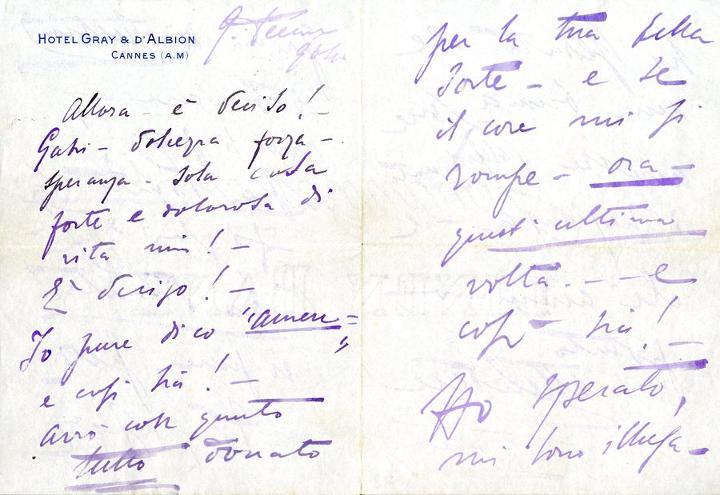 HOTEL GRAY & D'ALBION
CANNES (A.M)
Allora - è deciso! -
Gabri - dolcezza forza -
speranza - sola cosa
forte e dolorosa di
vita mia! -
È deciso! -
Io pure dico "amen" =
e così sia! -
avrò così quanto
tutto donato
per la tua bella
sorte - e se
il core mi si
rompe - ora -
quest'ultima
volta. - - e
così sia!
Ho sperato,
mi sono illusa -